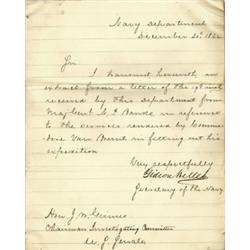 Navy Department
December 20th 1862
Sir:
I transmit herewith an
extract from a letter of the 19th inst
received by this department from
Maj Genl N. P. Banks in refer-
ence to the services rendered by Commo-
dore Van Brunt in fitting out his
expedition.
Very respectfully
Gideon Welles
Secretary of the Navy
Hon. J. W. Grimes
Chairman Investigating Committee
U. S. Senate